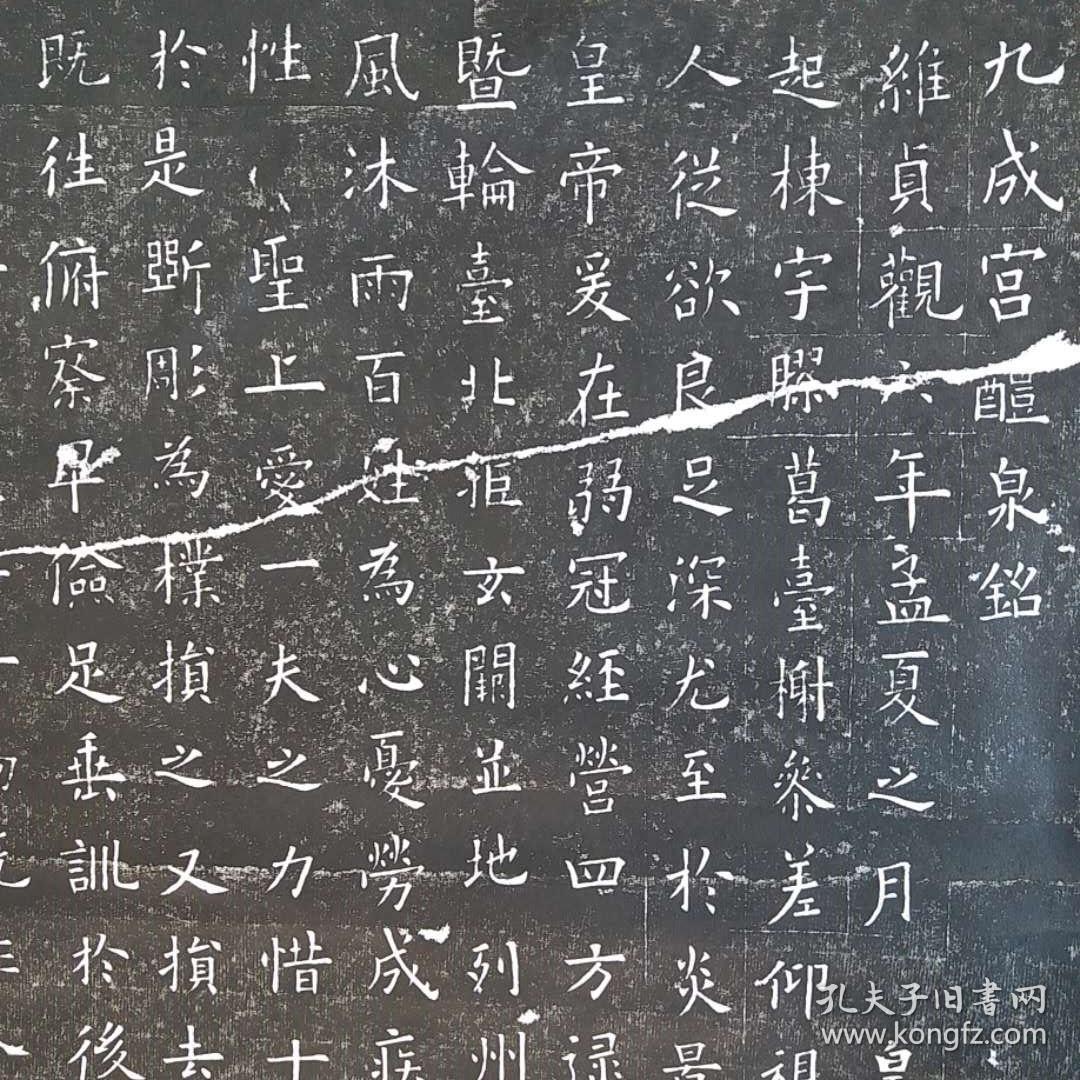 九成宮醴泉銘
維貞觀六年孟夏之月皇
起棟宇膠葛臺榭叅差仰視
人從欲良足深尤至於炎景
皇帝爰在弱冠經營四方逮
暨輪臺北拒玄闕並地列州
風沐雨百姓為心憂勞成疾
性聖上愛一夫之力惜十
於是斲彫為樸損之又損去
既往俯察卑儉足垂訓於後
孔夫子旧書网
www.kongfz.com